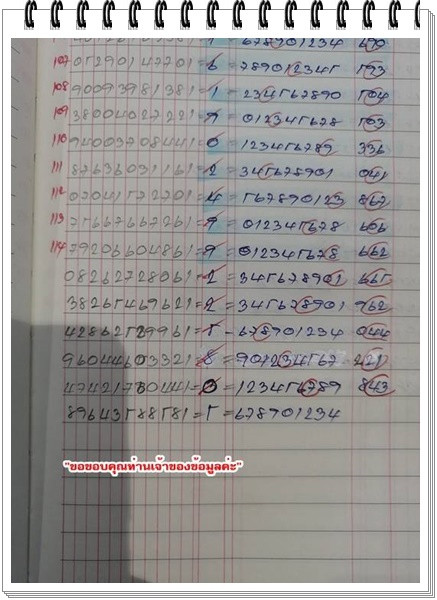 678901234
107 05290147701 = 6 = 789012345 593
108 90093981381 = 1 = 234567890 504
109 38004027221 = 9 = 012345678 503
110 94003708441 = 0 = 123456789 336
111 87636031161 = 2 = 345678901 041
112 07041572701 = 4 = 567890123 867
113 75667667261 = 9 = 012345678 606
114 79206604861 = 9 = 012345678 662
08262728061 = 2 = 345678901 665
38265469621 = 2 = 345678901 962
42862529961 = 5 - 678901234 044
96044603321 = 8 = 901234567 221
47421780441 = 0 = 123456789 843
89643588581 = 5 = 678901234
"ขอขอบคุณท่านเจ้าของข้อมูลค่ะ"